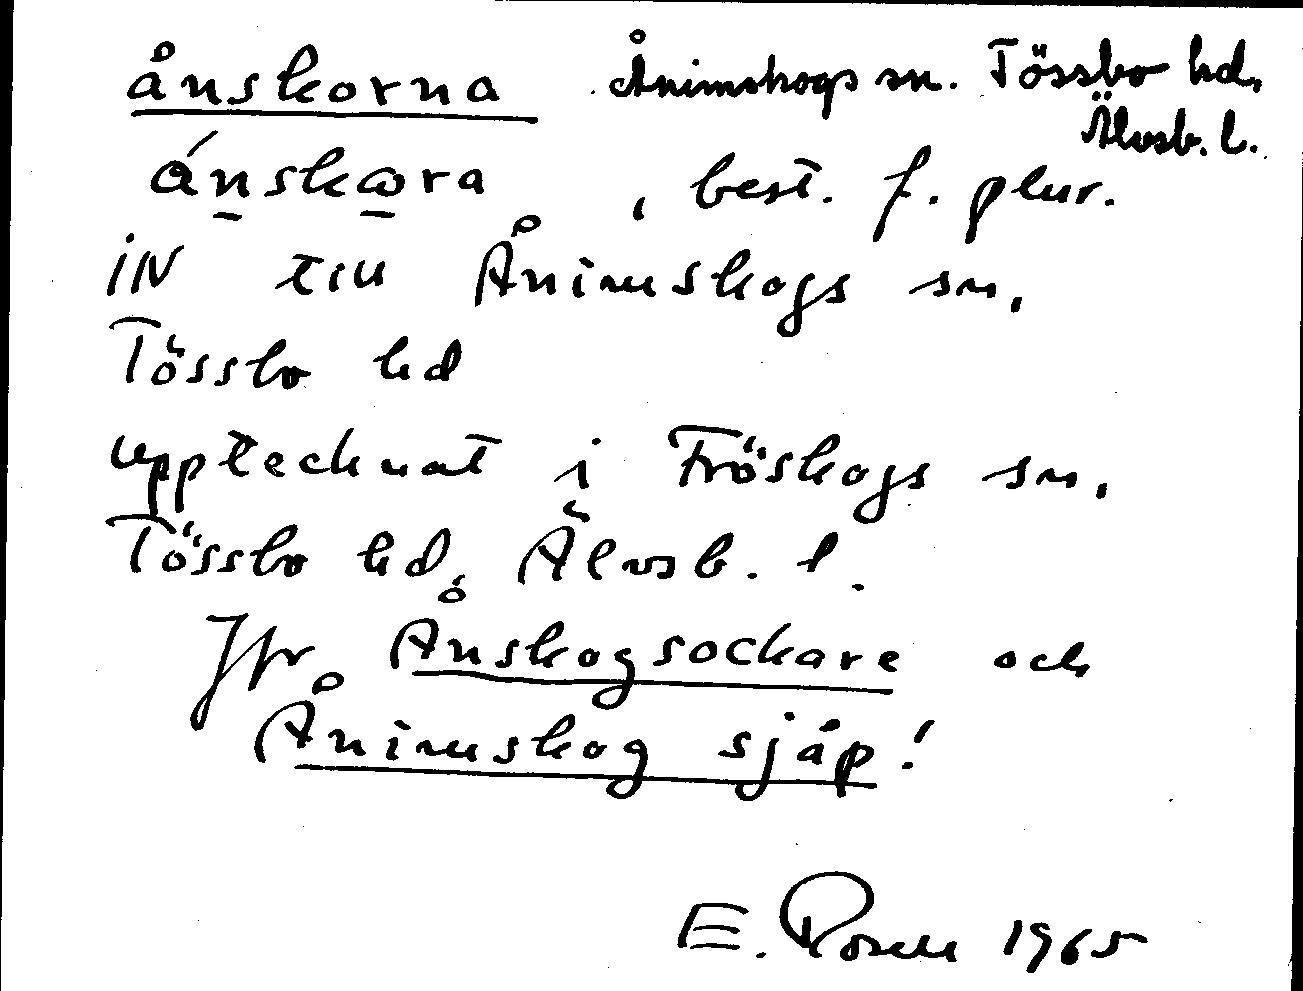 ånskorna Ånimskogs sn. Tössbo hd,
Älvsb. l.
ánskωra, best. f. plur.
iN till Ånimskogs sn,
Tössbo hd
upptecknat i Fröskogs sn,
Tössbo hd, Älvsb. l.
Jfr Ånskogsockare och
Ånimskog sjåp!
E. Rosell 1965